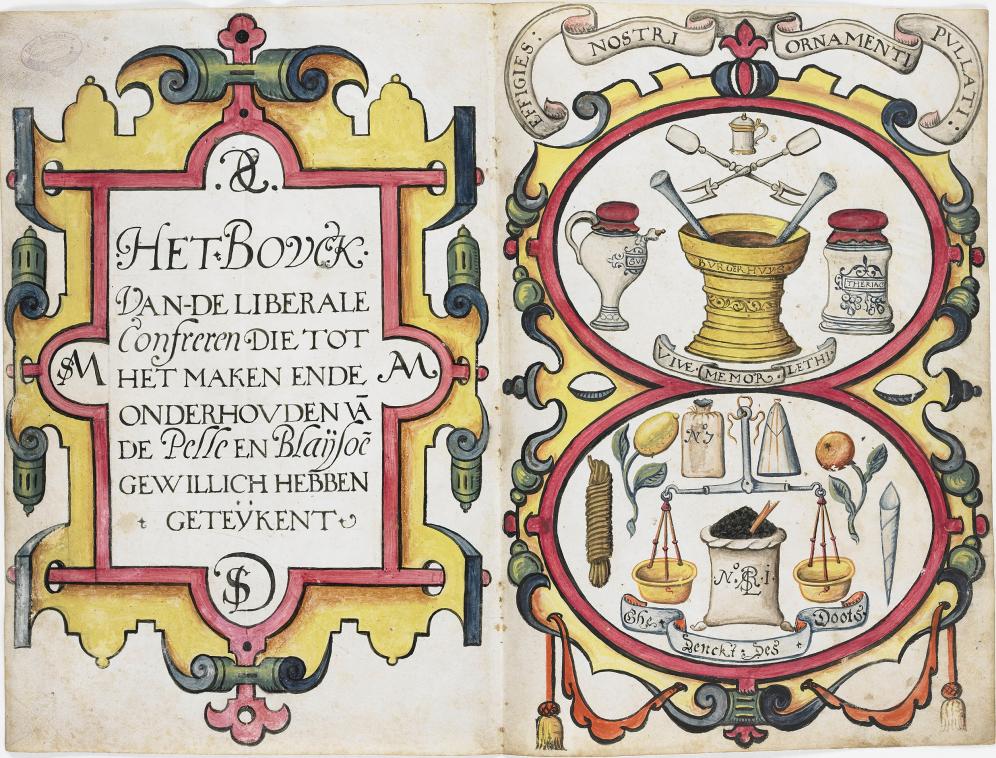 HET BOVCK
VAN-DE LIBERALE
Confreren DIE TOT
HET MAKEN ENDE
ONDERHOVDEN VĀ
DE Pelle EN Blaÿsoē
GEWILLICH HEBBEN
GETEŸKENT
SM
AM
SD
EFFIGIES: NOSTRI ORNAMENTI PVLLATI:
BVRGERHUYS
THERIAC
VIVE MEMOR LETHI
No 1
No
Ghe Denckt Des Doots